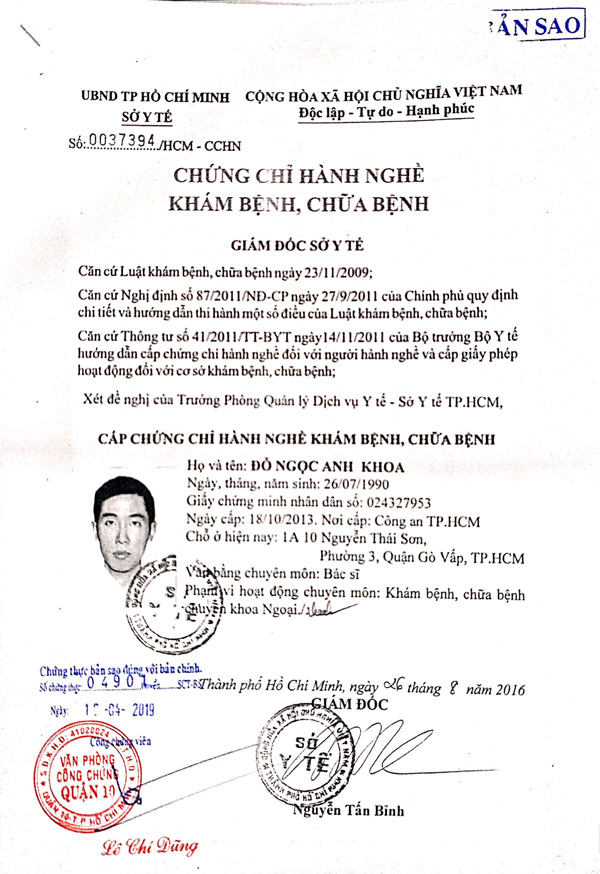 BẢN SAO
UBND TP HỒ CHÍ MINH
SỞ Y TẾ
CỘNG HÒA XÃ HỘI CHỦ NGHĨA VIỆT NAM
Độc lập - Tự do - Hạnh phúc
Số: 0037394 /HCM - CCHN
CHỨNG CHỈ HÀNH NGHỀ
KHÁM BỆNH, CHỮA BỆNH
GIÁM ĐỐC SỞ Y TẾ
Căn cứ Luật khám bệnh, chữa bệnh ngày 23/11/2009;
Căn cứ Nghị định số 87/2011/NĐ-CP ngày 27/9/2011 của Chính phủ quy định
chi tiết và hướng dẫn thi hành một số điều của Luật khám bệnh, chữa bệnh;
Căn cứ Thông tư số 41/2011/TT-BYT ngày14/11/2011 của Bộ trưởng Bộ Y tế
hướng dẫn cấp chứng chỉ hành nghề đối với người hành nghề và cấp giấy phép
hoạt động đối với cơ sở khám bệnh, chữa bệnh;
Xét đề nghị của Trưởng Phòng Quản lý Dịch vụ Y tế - Sở Y tế TP.HCM,
CẤP CHỨNG CHỈ HÀNH NGHỀ KHÁM BỆNH, CHỮA BỆNH
Họ và tên: ĐỖ NGỌC ANH KHOA
Ngày, tháng, năm sinh: 26/07/1990
Giấy chứng minh nhân dân số: 024327953
Ngày cấp: 18/10/2013. Nơi cấp: Công an TP.HCM
Chỗ ở hiện nay: 1A 10 Nguyễn Thái Sơn,
Phường 3, Quận Gò Vấp, TP.HCM
Văn bằng chuyên môn: Bác sĩ
Phạm vi hoạt động chuyên môn: Khám bệnh, chữa bệnh
chuyên khoa Ngoại./
SỞ
Y TẾ
Chứng thực bản sao đúng với bản chính.
Số chứng thực 04907 SCT-BS
Ngày: -04- 2019
Công chứng viên
VĂN PHÒNG
CÔNG CHỨNG
QUẬN 10
QUẬN 10-T.P HỒ CHÍ MINH
Lê Chí Dũng
Thành phố Hồ Chí Minh, ngày 26 tháng 8 năm 2016
GIÁM ĐỐC
SỞ
Y TẾ
Nguyễn Tấn Bỉnh